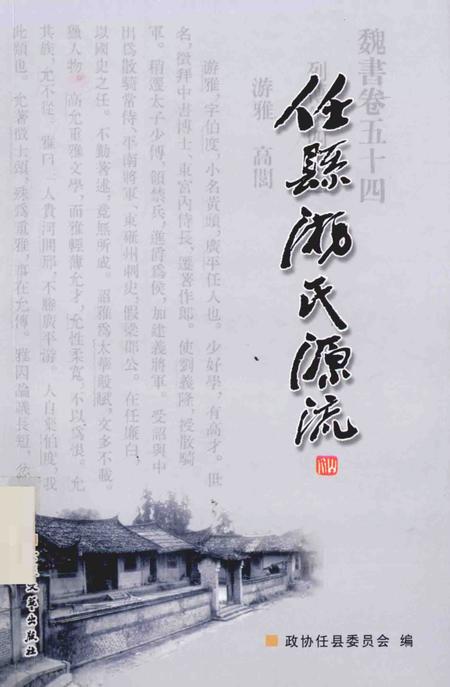 魏書卷五十四
游雅 高閭
任縣游氏源流
游雅，字伯度，小名黃頭，廣平任人也。少好學，有高才。世
名，徵拜中書博士、東宮內侍長，遷著作郎。使劉義隆，授散騎
軍。稍遷太子少傅，領禁兵，進爵爲侯，加建義將軍。受詔與中
出爲散騎常侍、平南將軍、東雍州刺史，假梁郡公。在任廉白，
以國史之任。不勤著述，竟無所成。詔雅爲太華殿賦，文多不載。
獵人物。高允重雅文學，而雅輕薄允才，允性柔寬，不以爲恨。允
其族，允不從。雅曰：人貴河間邢，不勝廣平游。人自棄伯度，我
此類也。允著徵士頌，殊爲重雅，事在允傳。雅因論議長短，忿
文藝出版社
政协任县委员会 编